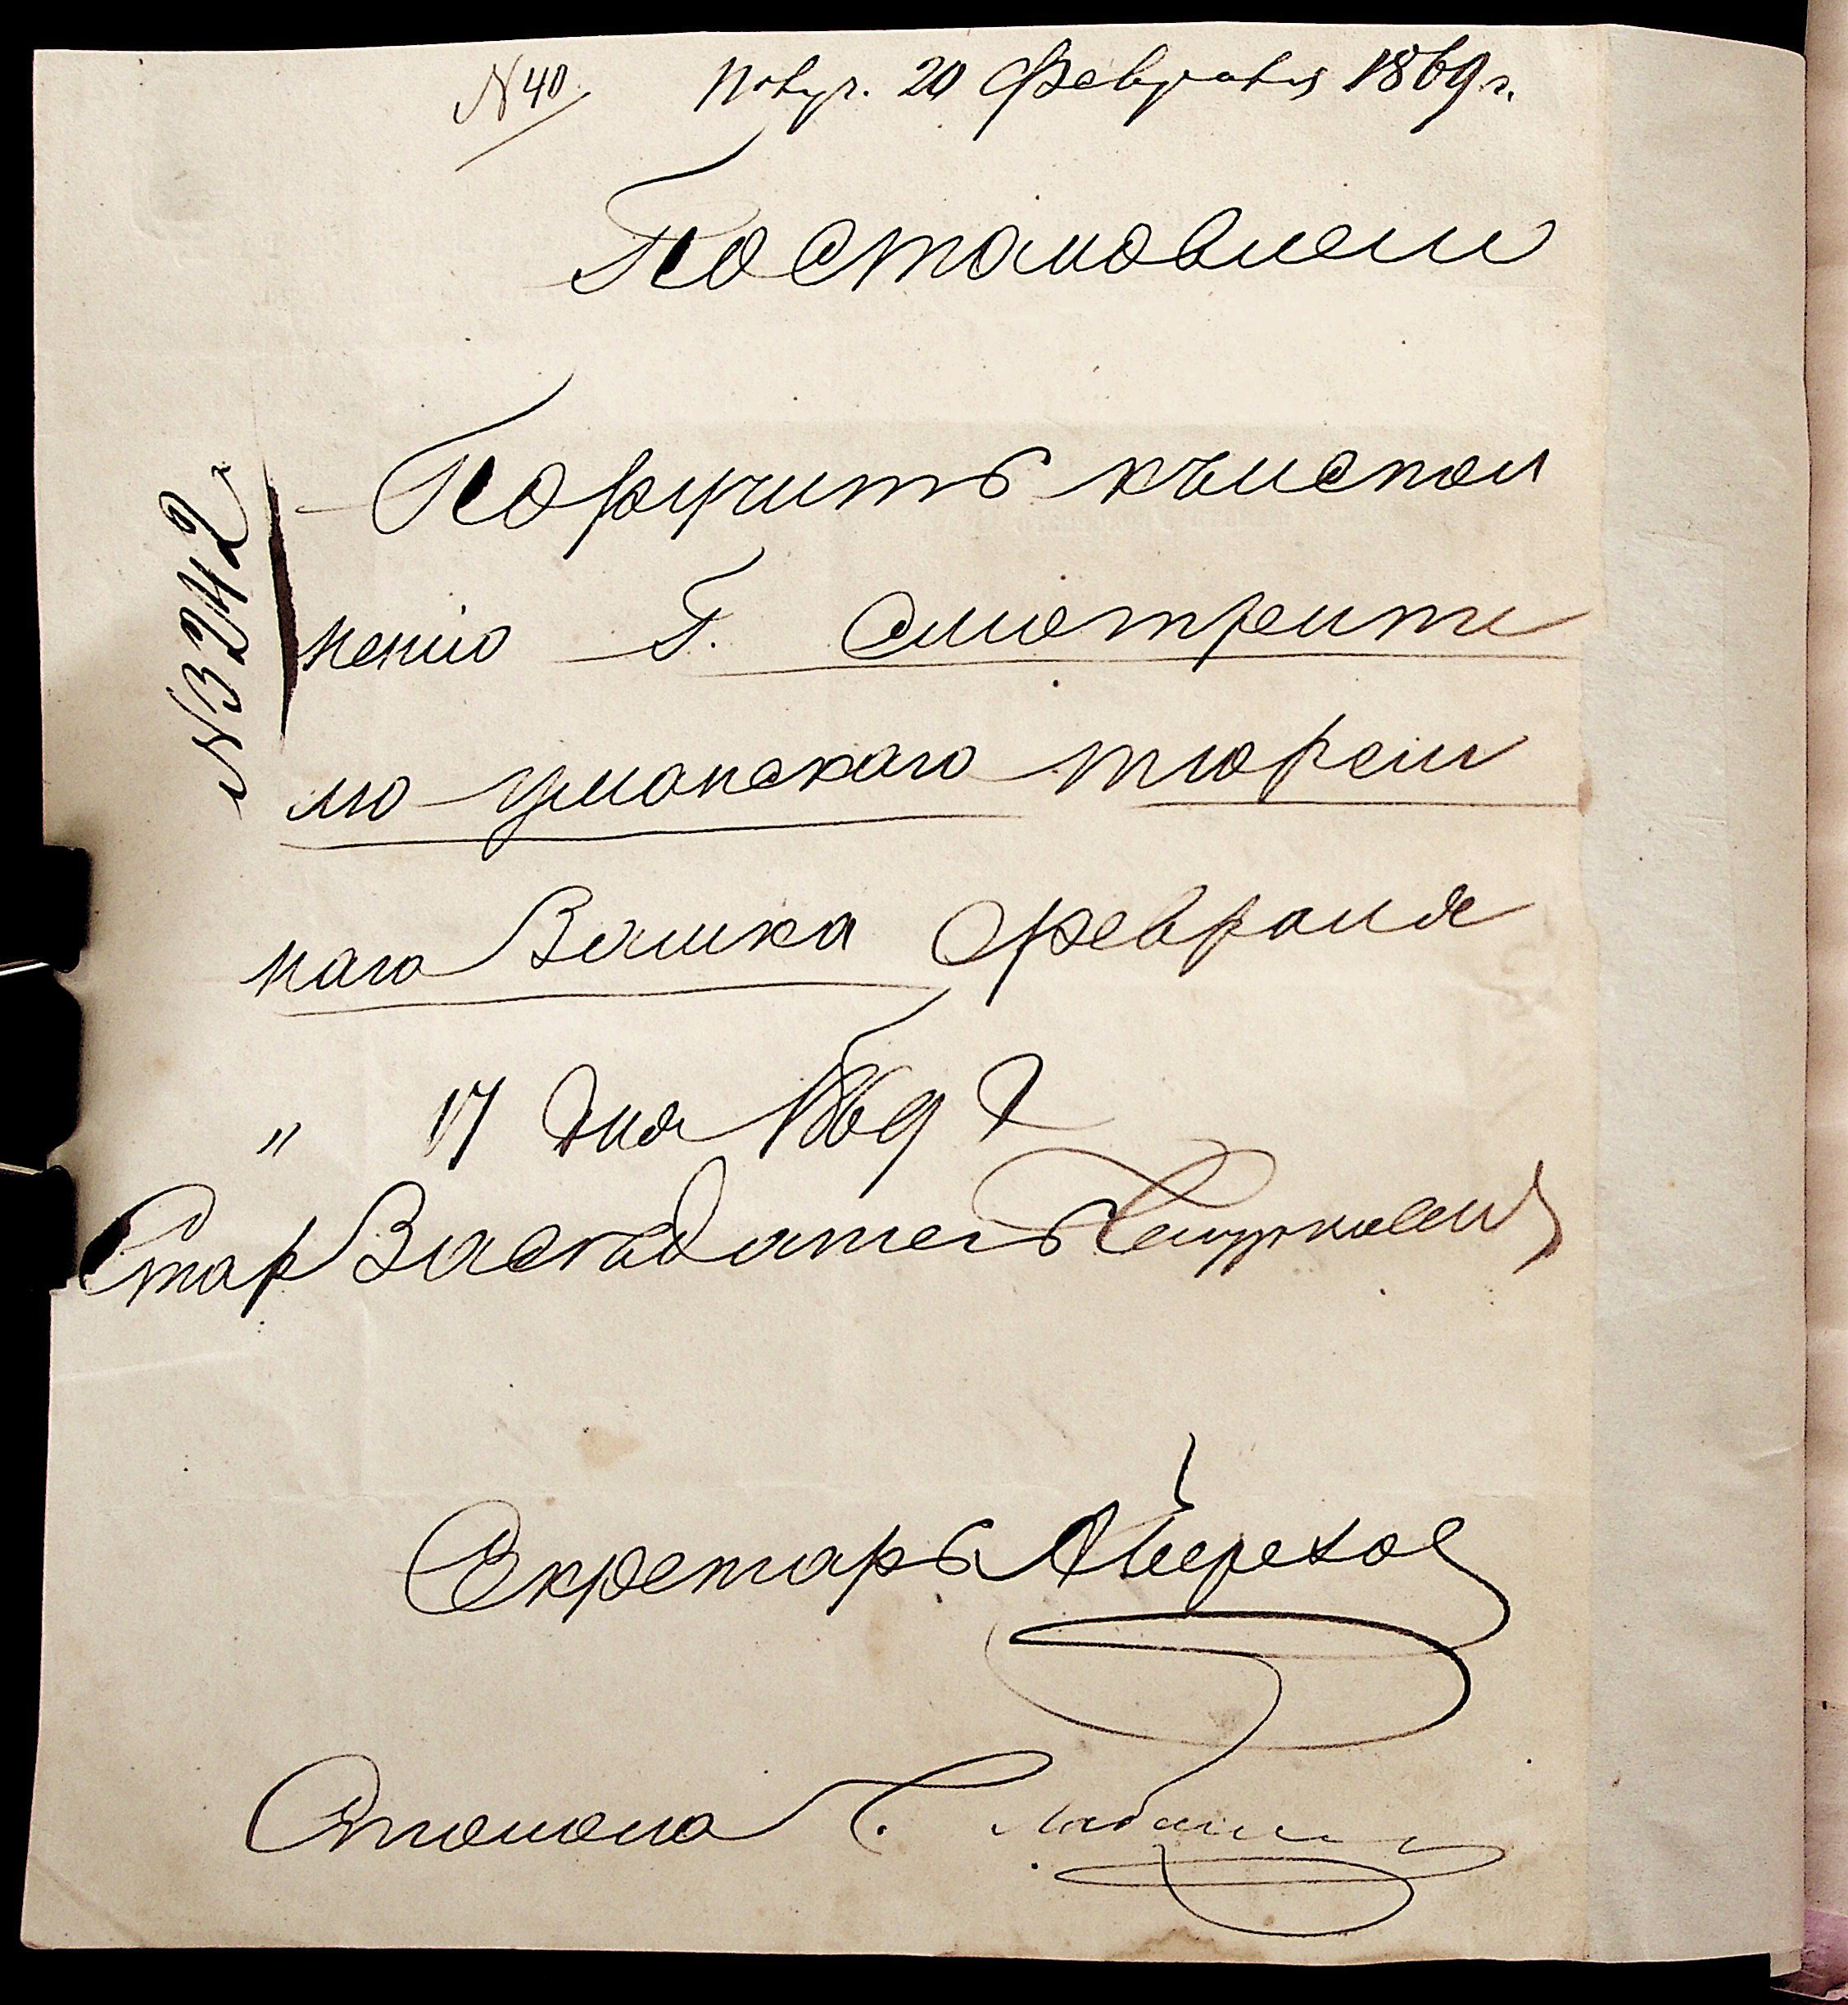 № 40. Получ. 20 Февраля 1869 г.
Постановлени
№ 3242
Поручить къ испол
нению Г. Смотрите
лю уманскаго тюрем
наго Замка Февраля
" 17 дня 1869 г
Стар Засѣдатель
Секретарь
Столонач.